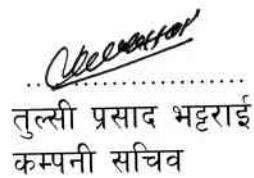 तुल्सी प्रसाद भट्टराई
कम्पनी सचिव